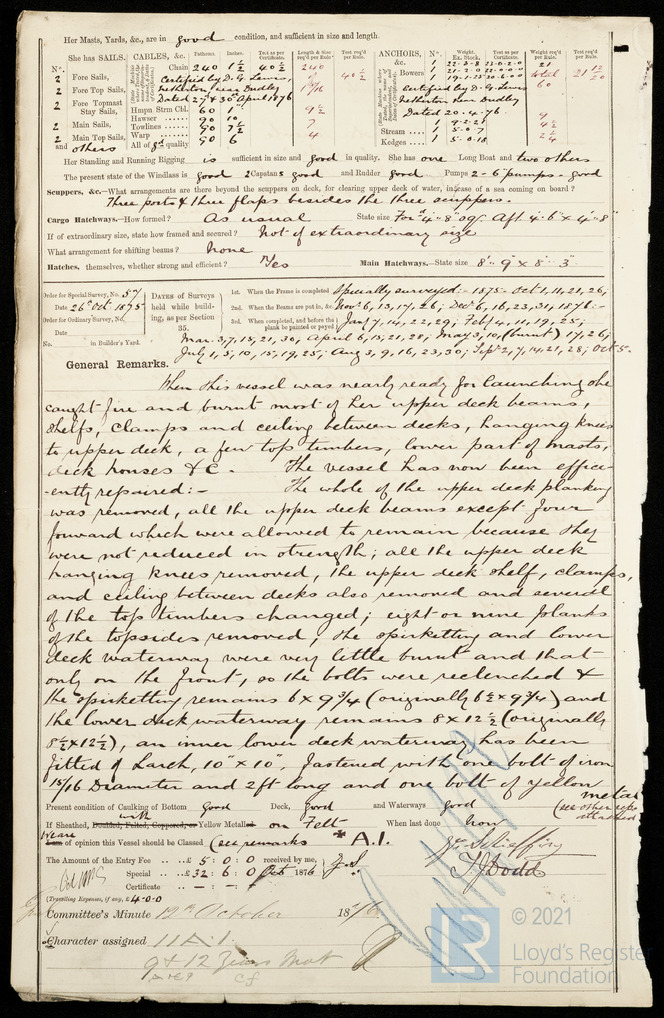 Her Masts, Yards, &c., are in good condition, and sufficient in size and length.
She has SAILS. CABLES, &c. Fathoms. Inches. Test as per Certificate. Length & Size req'd per Rule. Test req'd per Rule. ANCHORS, &c. No. Weight. Ex. Stock. Test as per Certificate. Weight req'd per Rule. Test req'd per Rule.
No.
Chain 240 1½ 40½ 240
2 Fore Sails, Certified by D. G. Lewis, 40½
Bowers 1
2 Fore Top Sails, Netherton near Dudley 1 8/16
Certified by D. G. Lewis
2 Fore Topmast Stay Sails, Dated 27 & 30 April 1876
Netherton near Dudley
Hmpn Strm Cbl. 60
Dated 20.4.76.
2 Main Sails, Hawser 90 10
1 9.2.21
2 Main Top Sails, Towlines 90 7½
Stream 1 5.0.7
and others Warp 90 6 4
Kedges 1
All of gd quality
Her Standing and Running Rigging is sufficient in size and good in quality. She has one Long Boat and two others
The present state of the Windlass is good 2 Capstans good and Rudder good Pumps 2-6" pumps - good
Scuppers, &c.—What arrangements are there beyond the scuppers on deck, for clearing upper deck of water, in case of a sea coming on board?
Three ports & three flaps besides the three scuppers.
Cargo Hatchways.—How formed? As usual State size For'd 4'.8" sq. Aft 4.6 x 4.8"
If of extraordinary size, state how framed and secured? Not of extraordinary size
What arrangement for shifting beams? None
Hatches. themselves, whether strong and efficient? Yes Main Hatchways.—State size 8'.9" x 8'.3"
Order for Special Survey, No. 57
Date 26th Oct 1875
Order for Ordinary Survey, No.
Date
No. in Builder's Yard.
DATES of Surveys held while building, as per Section 35.
1st. When the Frame is completed Specially surveyed:- 1875- Oct 1, 11, 21, 26,
2nd. When the Beams are put in, &c. Nov 6, 13, 17, 26; Dec 6, 16, 23, 31, 1876:-
3rd. When completed, and before the plank be painted or payed Jan 7, 14, 22, 29; Feb 4, 11, 19, 25;
Mar. 3, 7, 18, 21, 30; April 6, 15, 21, 28; May 3, 10, (burnt) 17, 26;
July 1, 5, 10, 15, 19, 25; Aug 3, 9, 16, 23, 30; Sept 2, 7, 14, 21, 28; Oct 5.
General Remarks.
When this vessel was nearly ready for launching she
caught fire and burnt most of her upper deck beams,
shelfs, clamps and ceiling between decks, hanging knees
to upper deck, a few top timbers, lower part of masts,
deck houses &c. The vessel has now been effici-
-ently repaired:- The whole of the upper deck planking
was removed, all the upper deck beams except four
forward which were allowed to remain because they
were not reduced in strength; all the upper deck
hanging knees removed, the upper deck shelf, clamps,
and ceiling between decks also removed and several
of the top timbers changed; eight or nine planks
of the topsides removed; the spirketting and lower
deck waterway were very little burnt and that
only on the front, so the bolts were reclenched &
the spirketting remains 6 x 9¾ (originally 6½ x 9¾) and
the lower deck waterway remains 8 x 12½ (originally
8½ x 12½), an inner lower deck waterway has been
fitted of Larch, 10" x 10", fastened with one bolt of iron
15/16 Diameter and 2ft long and one bolt of yellow metal
Present condition of Caulking of Bottom Good Deck, Good and Waterways good
If Sheathed, Doubled, Felted, Coppered, or with Yellow Metalled on Felt When last done Now
We are of opinion this Vessel should be Classed (see remarks * A.1.
The Amount of the Entry Fee .. £ 5 : 0 : 0 received by me,
Special .. £ 32 : 6 : 0 Oct 1876
Certificate .. - : - : -
(Travelling Expenses, if any, £ 4-0-0
T. J. Dodds
Committee's Minute 12th October 1876
Character assigned 11 A.1.
© 2021
LR
Lloyd's Register
Foundation